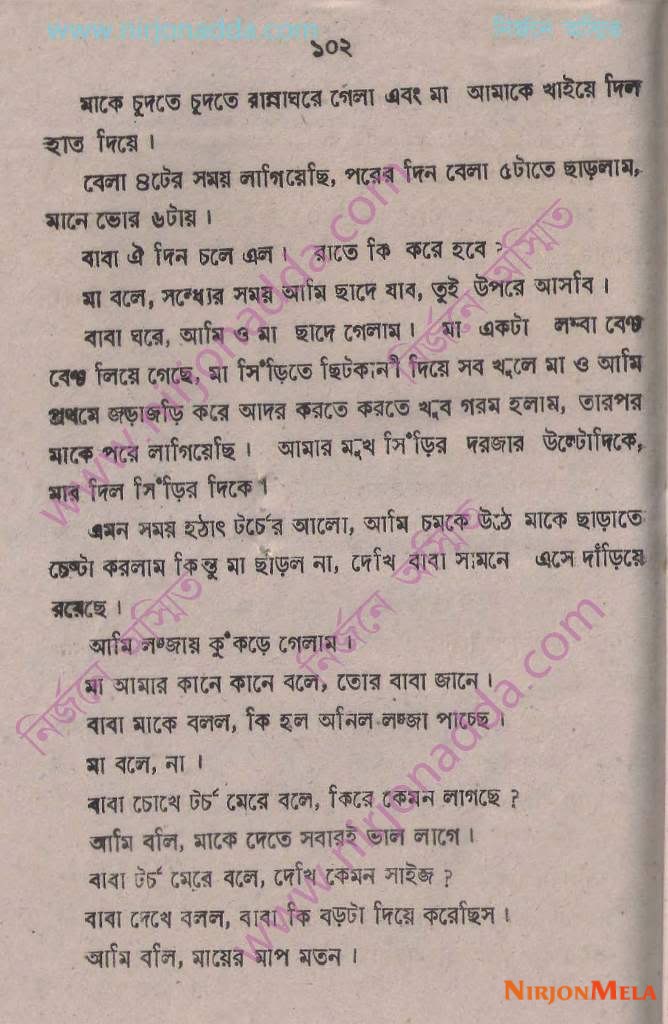 www.nirjonadda.com
নির্জনে অস্মিত
১০২
মাকে চুদতে চুদতে রান্নাঘরে গেলা এবং মা আমাকে খাইয়ে দিল
হাত দিয়ে।
বেলা ৪টের সময় লাগিয়েছি, পরের দিন বেলা ৫টাতে ছাড়লাম,
মানে ভোর ৬টায়।
বাবা ঐ দিন চলে এল। রাতে কি করে হবে?
মা বলে, সন্ধ্যের সময় আমি ছাদে যাব, তুই উপরে আসবি।
বাবা ঘরে, আমি ও মা ছাদে গেলাম। মা একটা লম্বা বেঞ্চ
বেঞ্চ লিয়ে গেছে, মা সিঁড়িতে ছিটকানী দিয়ে সব খুলে মা ও আমি
প্রথমে জড়াজড়ি করে আদর করতে করতে খুব গরম হলাম, তারপর
মাকে পরে লাগিয়েছি। আমার মুখ সিঁড়ির দরজার উল্টোদিকে,
মার দিল সিঁড়ির দিকে।
এমন সময় হঠাৎ টর্চের আলো, আমি চমকে উঠে মাকে ছাড়াতে
চেষ্টা করলাম কিন্তু মা ছাড়ল না, দেখি বাবা সামনে এসে দাঁড়িয়ে
রয়েছে।
আমি লজ্জায় কুঁকড়ে গেলাম।
মা আমার কানে কানে বলে, তোর বাবা জানে।
বাবা মাকে বলল, কি হল অনিল লজ্জা পাচ্ছে।
মা বলে, না।
বাবা চোখে টর্চ মেরে বলে, কিরে কেমন লাগছে?
আমি বলি, মাকে দেতে সবারই ভাল লাগে।
বাবা টর্চ মেরে বলে, দেখি কেমন সাইজ?
বাবা দেখে বলল, বাবা কি বড়টা দিয়ে করেছিস।
আমি বলি, মায়ের মাপ মতন।
www.nirjonadda.com
নির্জনে অস্মিত
নির্জনে অস্মিত
নির্জনে অস্মিত
www.nirjonadda.com
NIRJONMELA